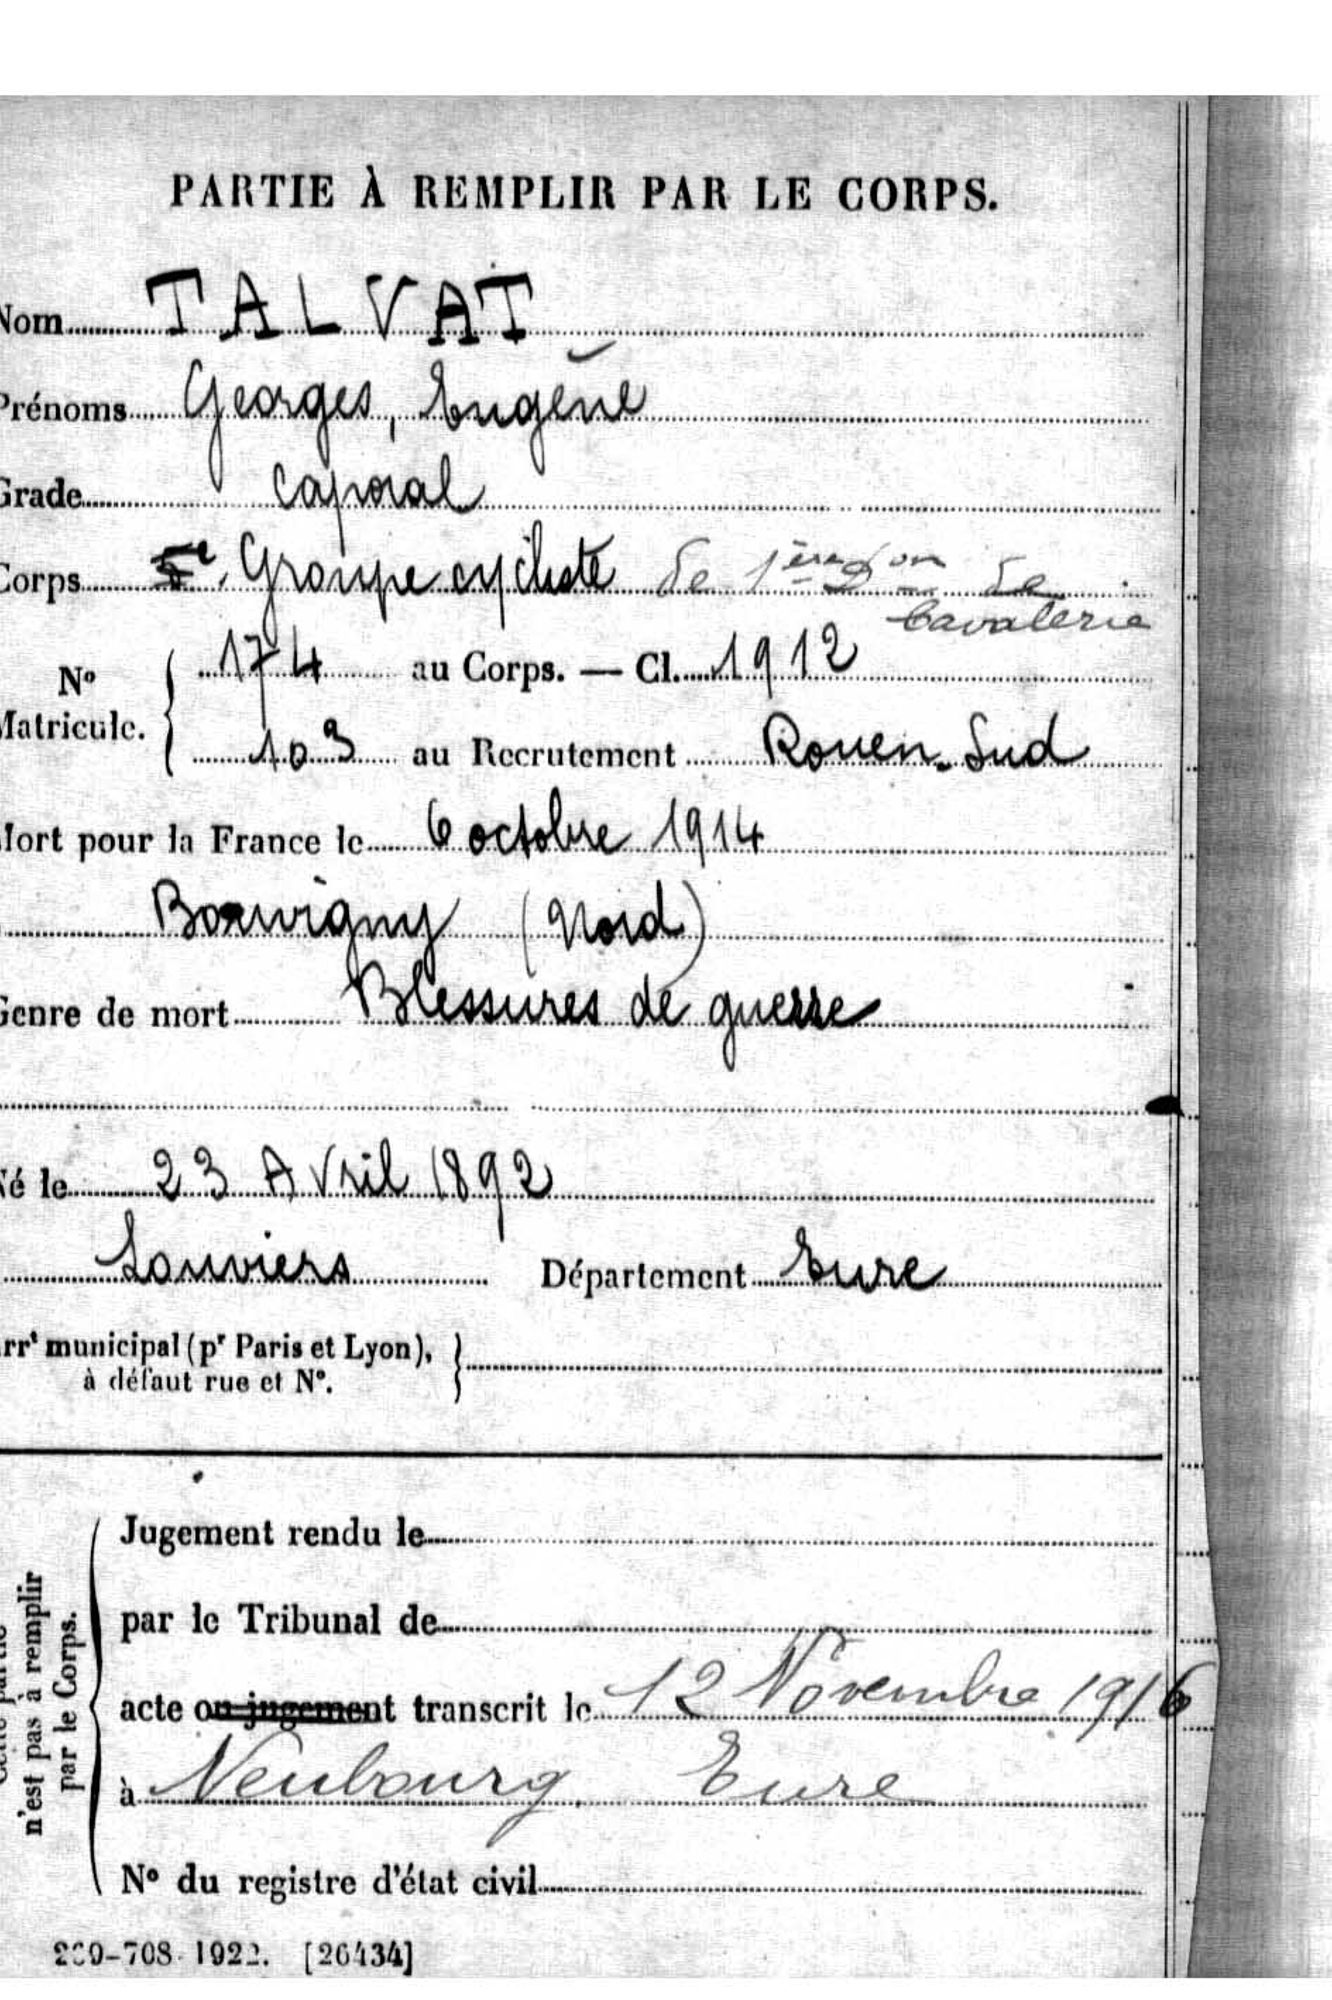 PARTIE À REMPLIR PAR LE CORPS.
Nom TALVAT
Prénoms Georges, Eugène
Grade caporal
Corps Groupe cycliste de 1ère Don de
Cavalerie
No Matricule. 174 au Corps. — Cl. 1912
103 au Recrutement Rouen-Sud
Mort pour la France le 6 octobre 1914
(Nord)
Genre de mort Blessures de guerre
Né le 23 Avril 1892
Louviers Département Eure
arrt municipal (pr Paris et Lyon),
à défaut rue et No.
Cette partie
n'est pas à remplir
par le Corps.
Jugement rendu le
par le Tribunal de
acte ou jugement transcrit le 12 Novembre 1916
à Neubourg, Eure
No du registre d'état civil
-708-1922. [26434]